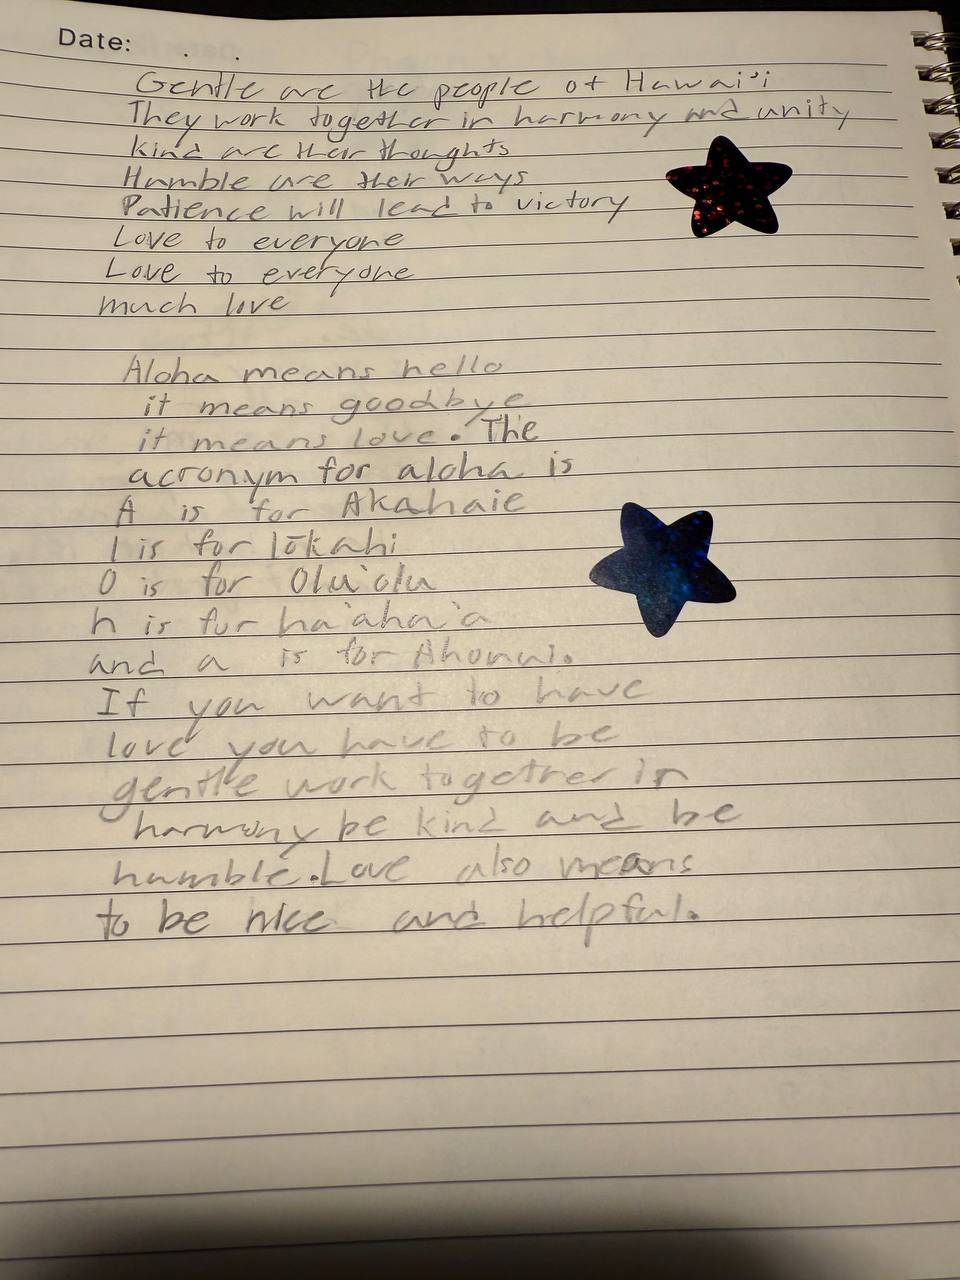 Date:
Gentle are the people of Hawai'i
They work together in harmony and unity
kind are their thoughts
Humble are their ways
Patience will lead to victory
Love to everyone
Love to everyone
much love
Aloha means hello
it means goodbye
it means love. The
acronym for aloha is
A is for Akahaie
l is for lōkahi
O is for Olu'olu
h is for ha'aha'a
and a is for Ahonui.
If you want to have
love you have to be
gentle work together in
harmony be kind and be
humble. Love also means
to be nice and helpful.